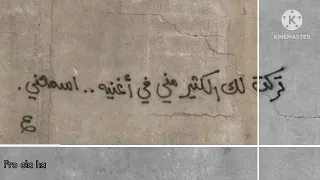 KINEMASTER
تركت لك الكثير مني في أغنيه .. اسمعني .
Pro ola ha